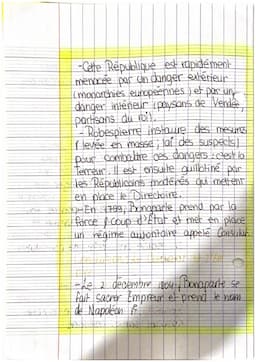 -Cette République est rapidement
menacée par un danger extérieur
(monarchies européennes) et par un
danger intérieur (paysans de Vendée,
partisans du roi).
-Robespierre instaure des mesures
(levée en masse, loi des suspects)
pour combattre ces dangers: c'est la
Terreur. Il est ensuite guillotiné par
les Républicains modérés qui mettent
en place le Directoire.
-En 1799, Bonaparte prend par la
Force (coup d'État et met en place
un régime autoritaire appelé Consulat
-Le 2 décembre 1804, Bonaparte se
fait sacrer Empreur et prend le nom
de Napoléon Ier.